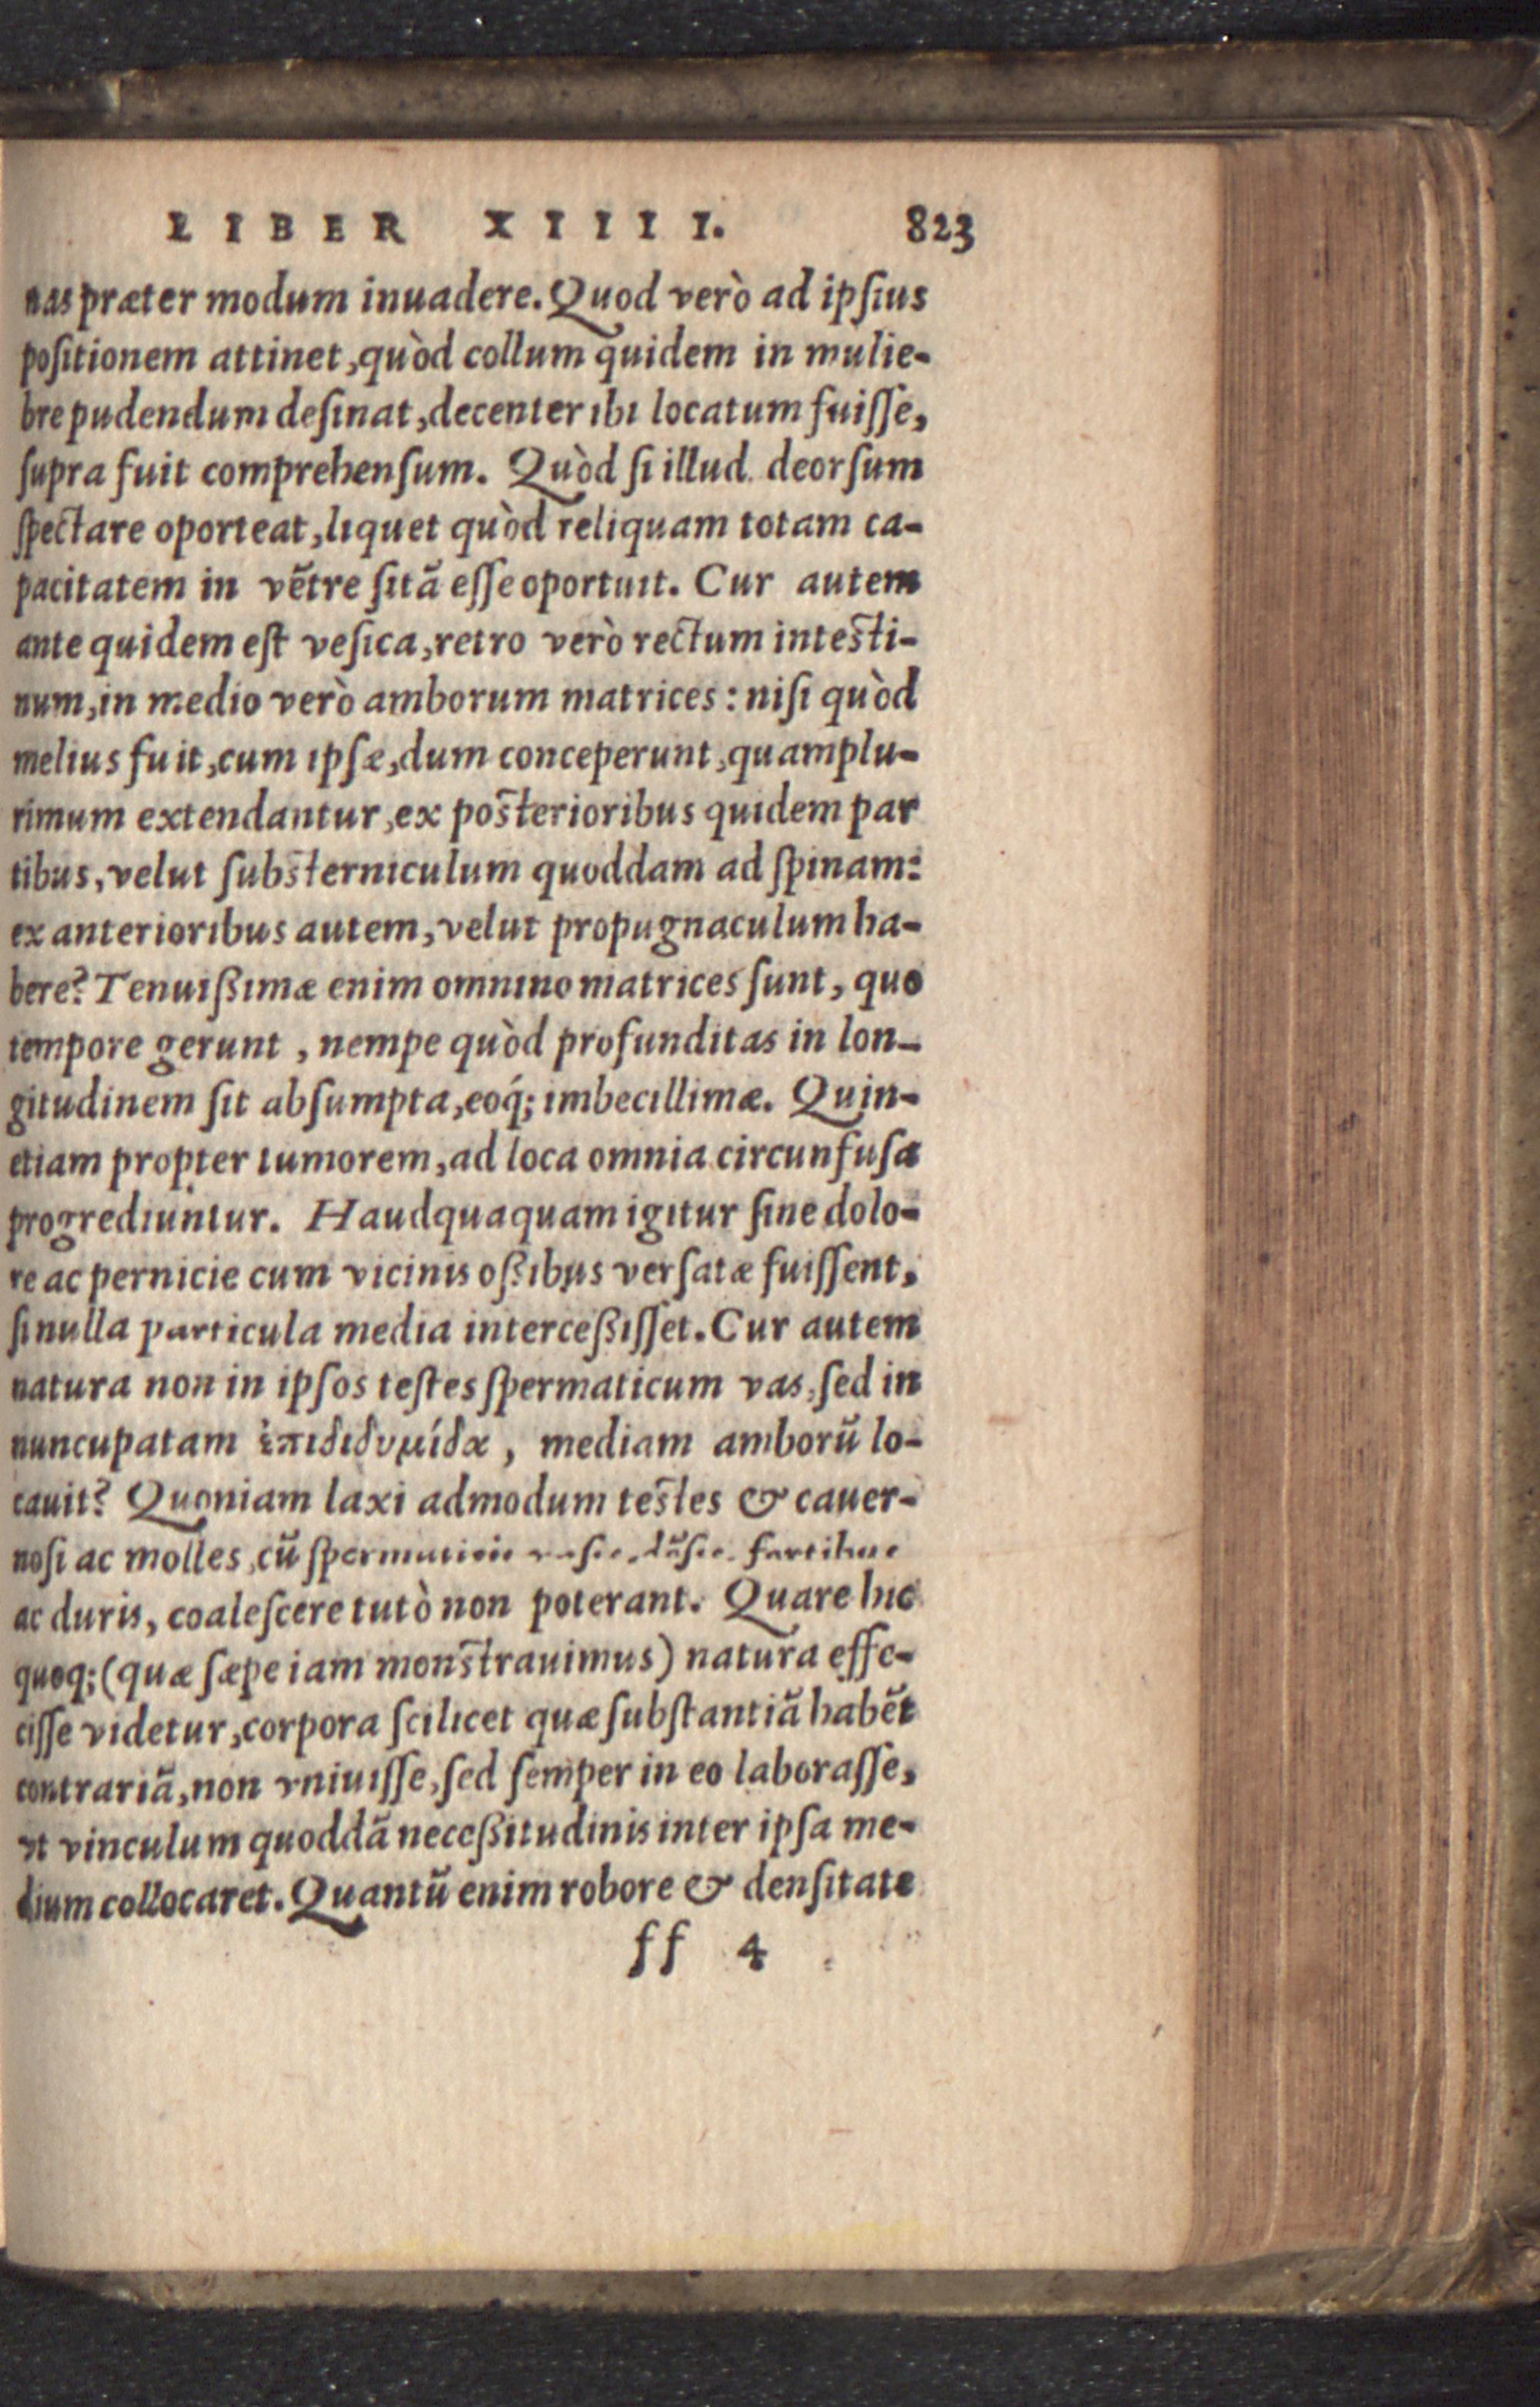 LIBER XIIII. 823
nas præter modum inuadere. Quod verò ad ipſius
poſitionem attinet, quòd collum quidem in mulie-
bre pudendum deſinat, decenter ibi locatum fuiſſe,
ſupra fuit comprehenſum. Quòd ſi illud deorſum
ſpectare oporteat, liquet quòd reliquam totam ca-
pacitatem in vētre ſitā eſſe oportuit. Cur autem
ante quidem eſt veſica, retro verò rectum inteſti-
num, in medio verò amborum matrices: niſi quòd
melius fuit, cum ipſæ, dum conceperunt, quamplu-
rimum extendantur, ex poſterioribus quidem par
tibus, velut ſubſterniculum quoddam ad ſpinam:
ex anterioribus autem, velut propugnaculum ha-
bere? Tenuißimæ enim omnino matrices ſunt, quo
tempore gerunt, nempe quòd profunditas in lon-
gitudinem ſit abſumpta, eoq́; imbecillimæ. Quin-
etiam propter tumorem, ad loca omnia circunfuſa
progrediuntur. Haudquaquam igitur ſine dolo-
re ac pernicie cum vicinis oßibus verſatæ fuiſſent,
ſi nulla particula media interceßiſſet. Cur autem
natura non in ipſos teſtes ſpermaticum vas, ſed in
nuncupatam ἐπιδιδυμίδα, mediam amborū lo-
cauit? Quoniam laxi admodum teſtes & cauer-
noſi ac molles, cū ſpermaticis vaſis, dēſis, fortibus
ac duris, coaleſcere tutò non poterant. Quare hic
quoq; (quæ ſæpe iam monſtrauimus) natura effe-
ciſſe videtur, corpora ſcilicet quæ ſubſtantiā habēt
contrariā, non vniuiſſe, ſed ſemper in eo laboraſſe,
vt vinculum quoddā neceßitudinis inter ipſa me-
dium collocaret. Quantū enim robore & denſitate
ff 4